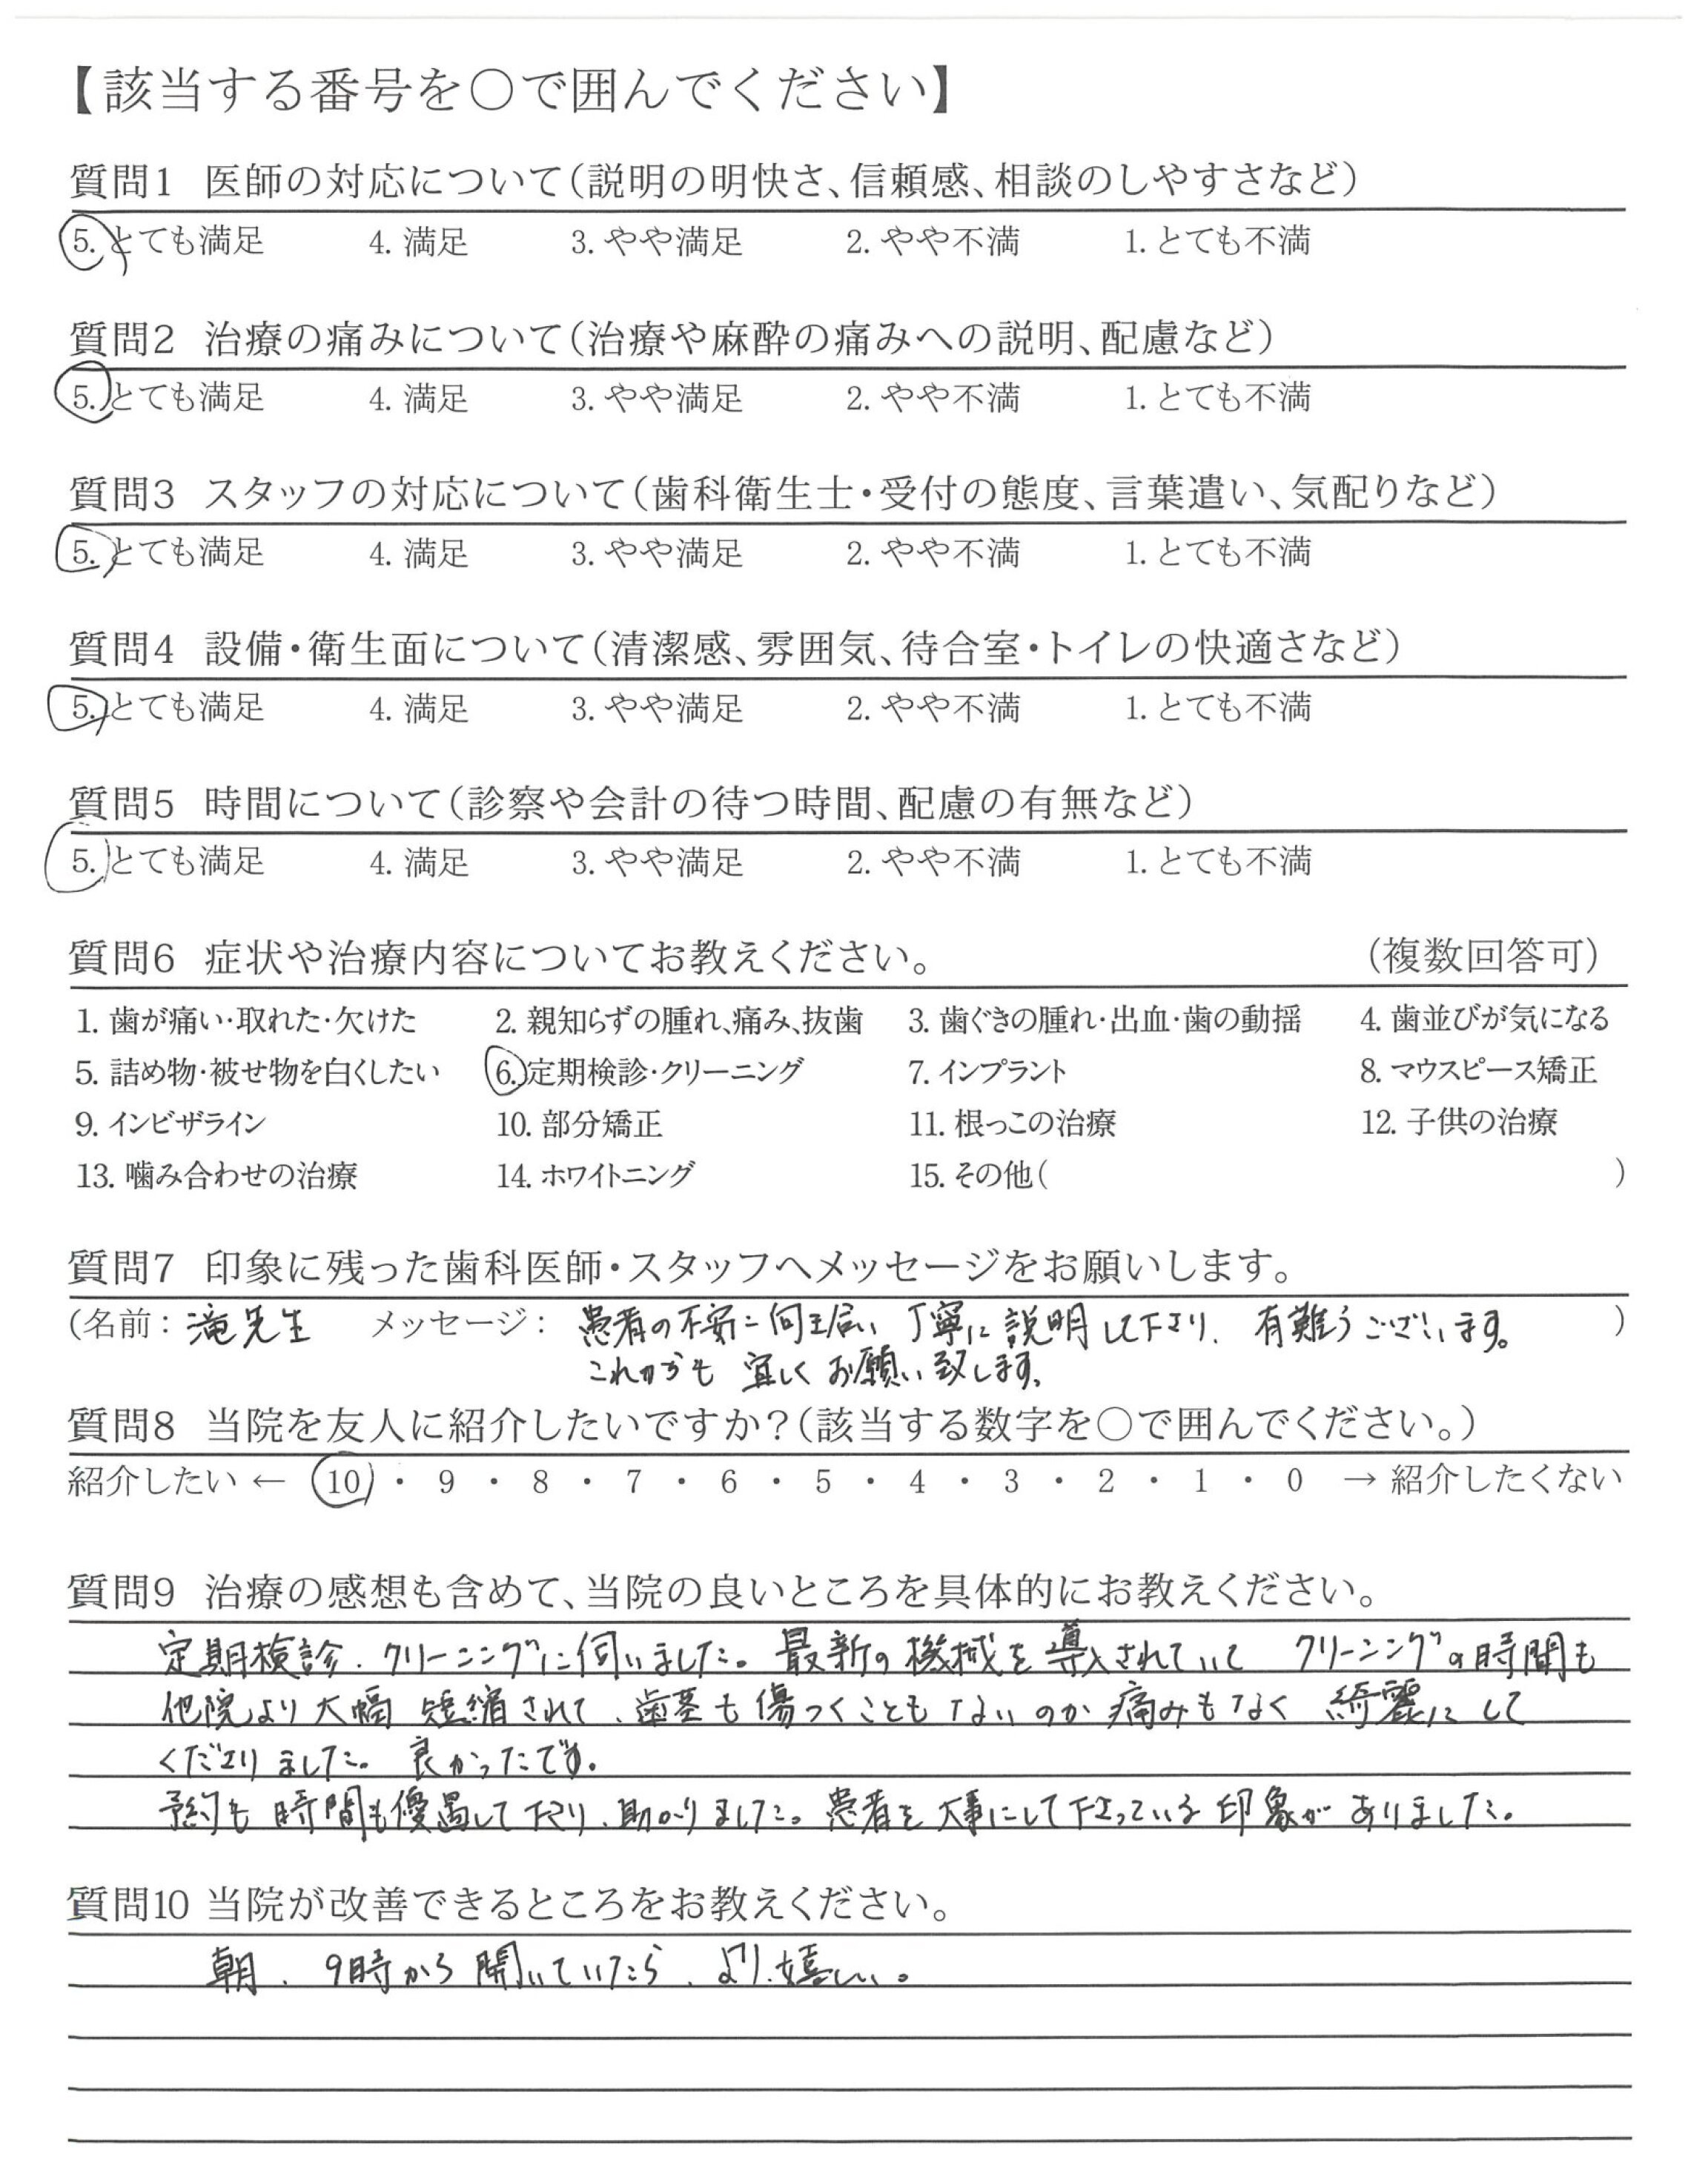 【該当する番号を○で囲んでください】
質問1 医師の対応について(説明の明快さ、信頼感、相談のしやすさなど)
5. とても満足 4. 満足 3. やや満足 2. やや不満 1. とても不満
質問2 治療の痛みについて(治療や麻酔の痛みへの説明、配慮など)
5. とても満足 4. 満足 3. やや満足 2. やや不満 1. とても不満
質問3 スタッフの対応について(歯科衛生士・受付の態度、言葉遣い、気配りなど)
5. とても満足 4. 満足 3. やや満足 2. やや不満 1. とても不満
質問4 設備・衛生面について(清潔感、雰囲気、待合室・トイレの快適さなど)
5. とても満足 4. 満足 3. やや満足 2. やや不満 1. とても不満
質問5 時間について(診察や会計の待つ時間、配慮の有無など)
5. とても満足 4. 満足 3. やや満足 2. やや不満 1. とても不満
質問6 症状や治療内容についてお教えください。 (複数回答可)
1. 歯が痛い・取れた・欠けた 2. 親知らずの腫れ、痛み、抜歯 3. 歯ぐきの腫れ・出血・歯の動揺 4. 歯並びが気になる
5. 詰め物・被せ物を白くしたい 6. 定期検診・クリーニング 7. インプラント 8. マウスピース矯正
9. インビザライン 10. 部分矯正 11. 根っこの治療 12. 子供の治療
13. 噛み合わせの治療 14. ホワイトニング 15. その他( )
質問7 印象に残った歯科医師・スタッフへメッセージをお願いします。
(名前: 滝先生 メッセージ: 患者の不安に向き合い 丁寧に説明して下さり、有難うございます。 )
これからも 宜しくお願い致します。
質問8 当院を友人に紹介したいですか?(該当する数字を○で囲んでください。)
紹介したい ← 10 ・ 9 ・ 8 ・ 7 ・ 6 ・ 5 ・ 4 ・ 3 ・ 2 ・ 1 ・ 0 → 紹介したくない
質問9 治療の感想も含めて、当院の良いところを具体的にお教えください。
定期検診、クリーニングに伺いました。最新の機械を導入されていて クリーニングの時間も
他院より大幅 短縮されて、歯茎も傷つくこともないのか 痛みもなく 綺麗にして
くださりました。良かったです。
予約も時間も優遇して下さり、助かりました。患者を大事にして下さっている印象がありました。
質問10 当院が改善できるところをお教えください。
朝、9時から開いていたら、より嬉しい。